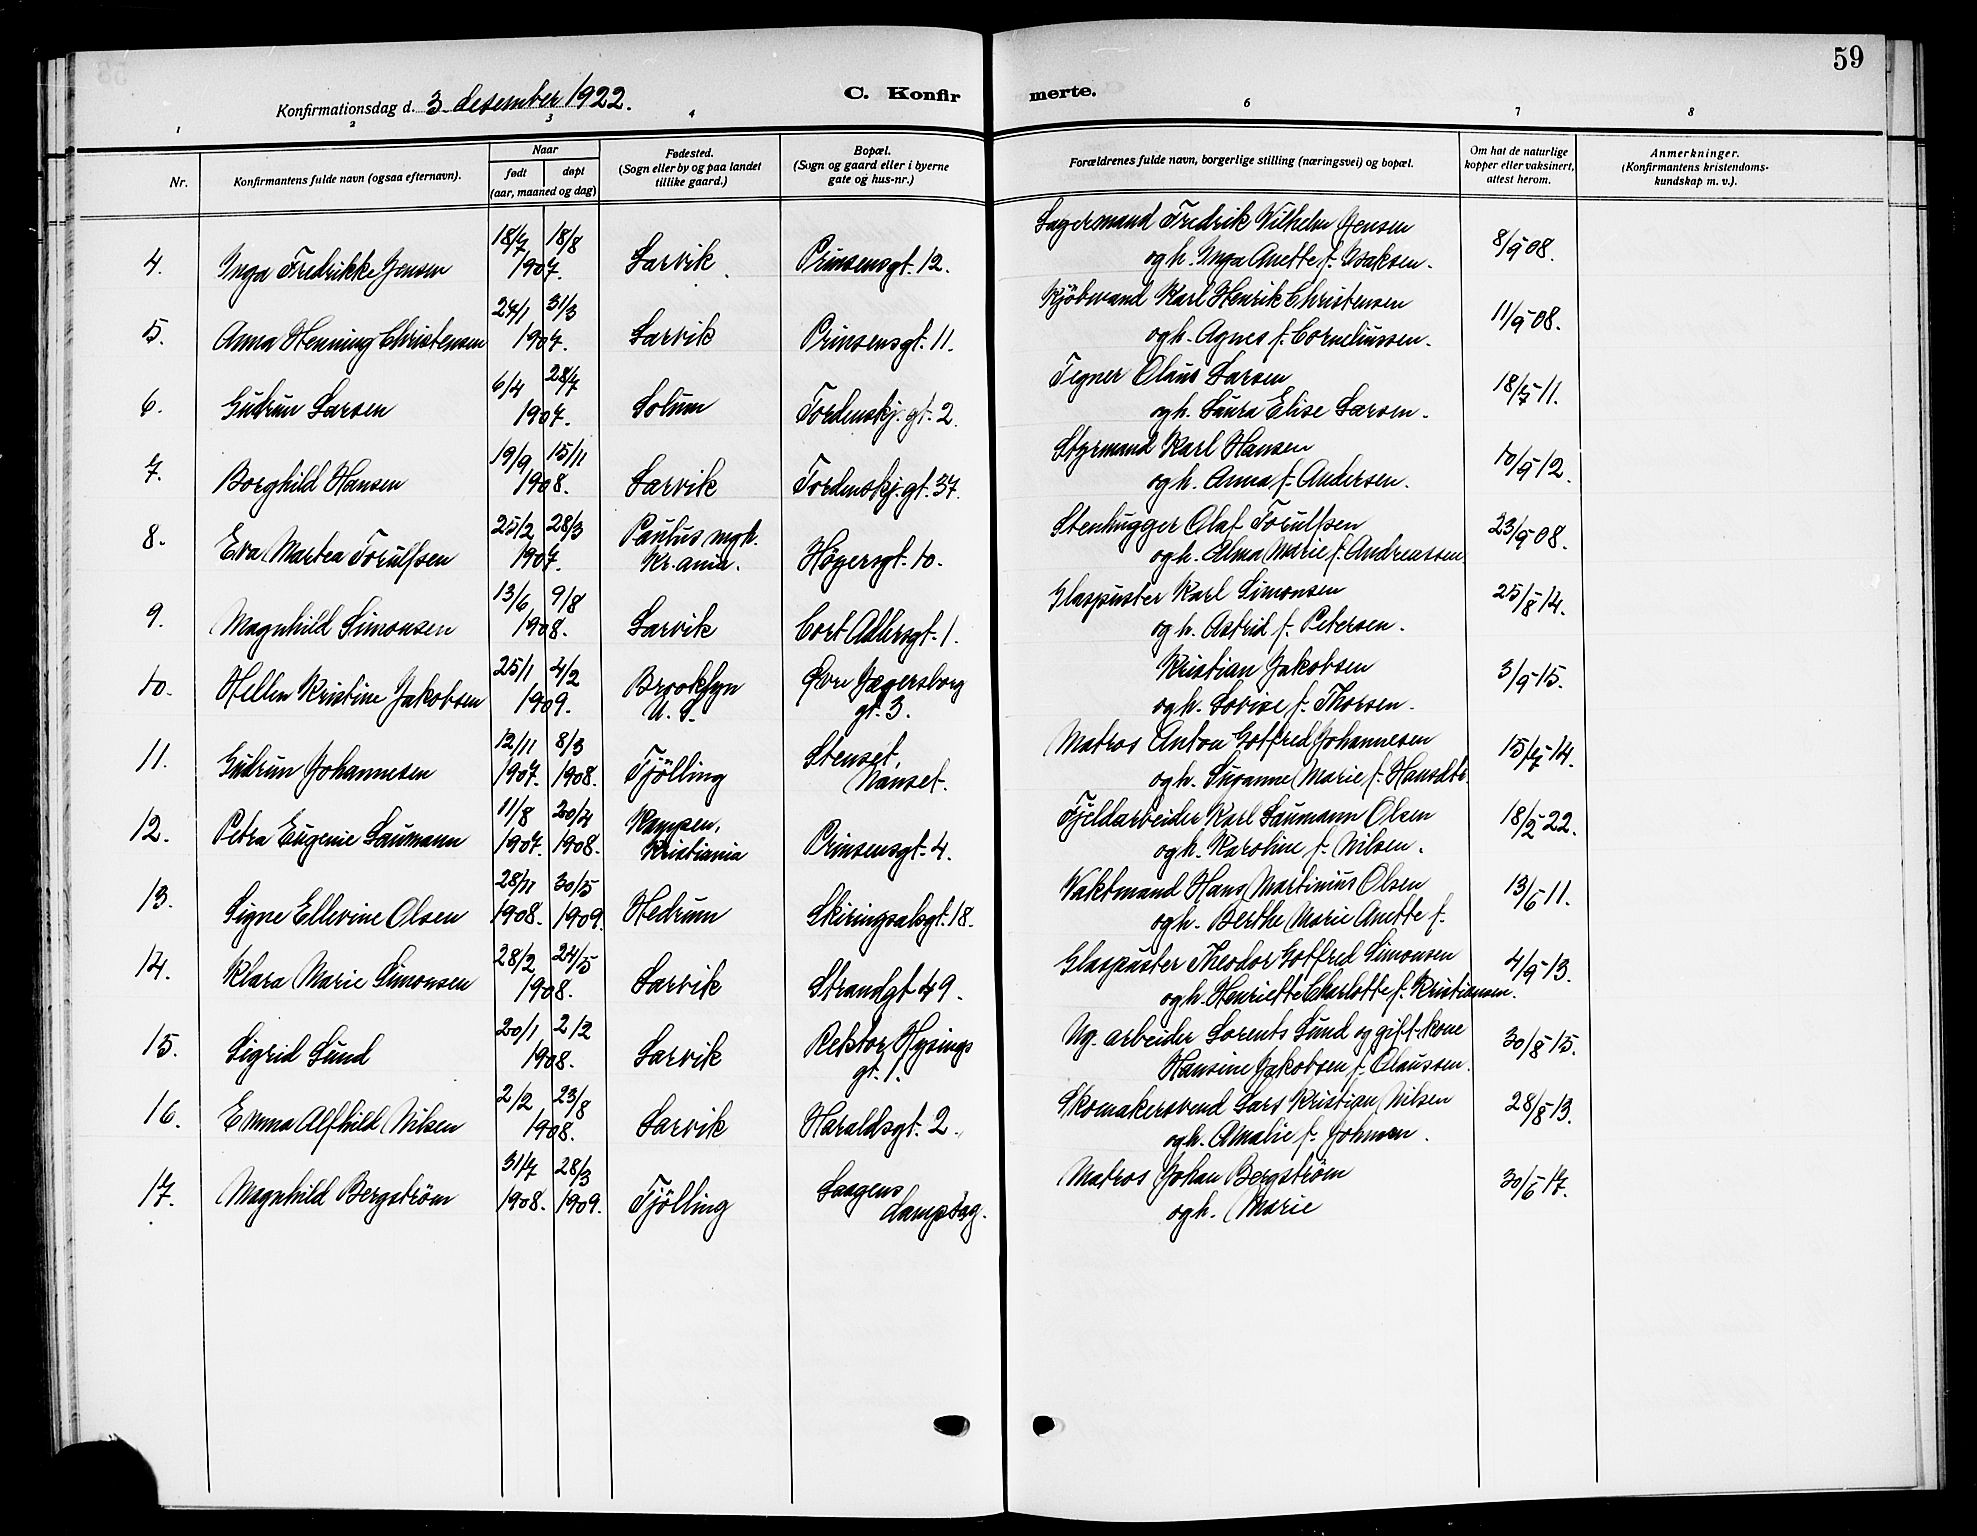 59
Konfirmationsdag d. 3. desember 1922.
C. Konfir
merte.
1 2 3 4 6 7 8
Nr.
Konfirmantens fulde navn (ogsaa efternavn).
Naar
født døpt
(aar, maaned og dag)
Fødested.
(Sogn eller by og paa landet
tillike gaard.)
Bopæl.
(Sogn og gaard eller i byerne
gate og hus-nr.)
Forældrenes fulde navn, borgerlige stilling (næringsvei) og bopæl.
Om hat de naturlige
kopper eller vaksinert,
attest herom.
Anmerkninger.
(Konfirmantens kristendoms-
kundskap m. v.).
18/7 18/8 Lagermand Fredrik Wilhelm Jensen
4. Inga Fredrikke Jensen 1907. Larvik Prinsensgt. 12. og h. Inga Anette f. Isaksen. 8/9 08.
24/1 31/3 Kjöbmand Karl Henrik Christensen
5. Anna Henning Christensen 1907. Larvik Prinsensgt. 11. og h. Agnes f. Corneliussen. 11/9 08.
6/4 28/7 Tegner Olaus Larsen
6. Gudrun Larsen 1907. Solum Tordenskj. gt. 2. og h. Laura Elise Larsen. 18/7 11.
19/9 15/11 Styrmand Karl Hansen
7. Borghild Hansen 1908. Larvik Tordenskj. gt. 37. og h. Anna f. Andersen. 10/9 12.
25/2 28/3 Paulus mgh. Stenhugger Olaf Torulfsen
8. Eva Martea Torulfsen 1907. Kr.ania. Høyersgt. 10. og h. Alma Marie f. Andreassen 23/9 08.
13/6 9/8 Glaspuster Karl Simonsen
9. Magnhild Simonsen 1908. Larvik Cort Adlersgt. 1. og h. Astrid f. Petersen. 25/8 14.
25/1 4/2 Brooklyn Øvre Jægersborg Kristian Jakobsen
10. Hellen Kristine Jakobsen 1909. U. S. gt. 3. og h. Lovise f. Thorsen. 3/9 15.
12/11 8/3 Stenset, Matros Anton Gotfred Johannesen
11. Gudrun Johannesen 1907. 1908. Tjölling Nanset. og h. Susanne Marie f. Hansdtr. 15/7 14.
11/8 20/4 Kampen, Fjeldarbeider Karl Laumann Olsen
12. Petra Eugenie Laumann 1907. 1908. Kristiania Prinsensgt. 4. og h. Karoline f. Nilsen. 18/2 22.
28/11 30/5 Vaktmand Hans Martinius Olsen
13. Signe Ellevine Olsen 1908. 1909. Hedrum Skiringsalsgt. 18. og h. Berthe Marie Anette f. 13/6 11.
28/2 24/5 Glaspuster Theodor Gotfred Simonsen
14. Klara Marie Simonsen 1908. Larvik Strandgt 49. og h. Henriette Charlotte f. Kristiansen. 4/9 13.
20/1 2/2 Rektor Hysings Ug. arbeider Lorents Lund og gift kone
15. Sigrid Lund 1908. Larvik gt. 1. Hansine Jakobsen f. Olaussen. 30/8 15.
2/2 23/8 Skomakersvend Lars Kristian Nilsen
16. Emma Alfhild Nilsen 1908. Larvik Haraldsgt. 2. og h. Amalie f. Johnsen. 28/8 13.
31/7 28/3 Laagens Matros Johan Bergström
17. Magnhild Bergström 1908. 1909. Tjölling dampsag. og h. Marie 30/6 17.